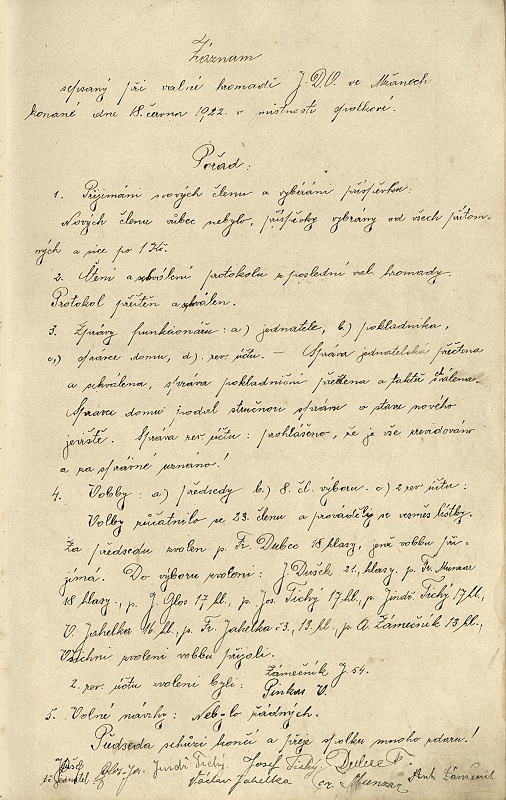 Záznam
sepsaný při valné hromadě J.D.O. ve Mžanech
konané dne 18. června 1922 v místnosti spolkové.
Pořad:
1. Přijímání nových členu a vybírání příspěvku:
Nových členu vůbec nebylo, příspěvky vybrany od všech přítom-
ných a sice po 1 Kč.
2. Čtení a schválení protokolu z poslední val. hromady.
Protokol přečten a schválen.
3. Zprávy funkcionářu: a) jednatele, b) pokladníka,
c,) správce domu, d). rev. účtu. — Správa jednatelská přečtena
a schválena, správa pokladniční přečtena a taktéž
Správce domu podal stručnou správu o stavu nového
jeviště. Správa rev. účtu: prohlášeno, že je vše revidováno
a za správné uznáno!
4. Volby: a) předsedy b) 8. čl. výboru. c) 2 rev. účtu:
Volby súčatnilo se 23. členu a prováděly se vesměs lístky.
Za předsedu zvolen p. Fr. Dubec 18 hlasy, jenž volbu při-
jímá. Do výboru zvoleni: J. Dušek 21, hlasy, p. Fr. Munzar
18 hlasy., p. J. Glos 17 hl., p. Jos. Tichý 17 hl., p. Jindř. Tichý 17 hl.,
V. Jahelka 16 hl., p. Fr. Jahelka č 3., 13. hl., p. A. Zámečník 13 hl.,
Všichni zvoleni volbu přijali.
2. rev. účtu zvoleni byli: Zámečník J. 54.
Pinkas V.
5. Volné návrhy: Nebylo žádných.
Předseda schůzi končí a přeje spolku mnoho zdaru!
Glos Jos. Jindř Tichý. Josef Tichý Dubec F.
Václav Jahelka Munzar Ant. Zámečník